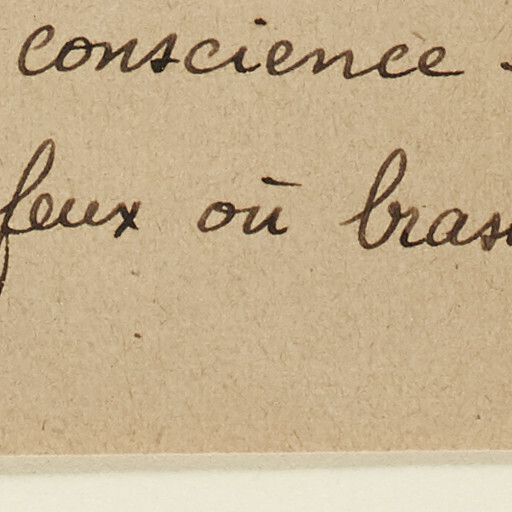 conscience -
feux où bras